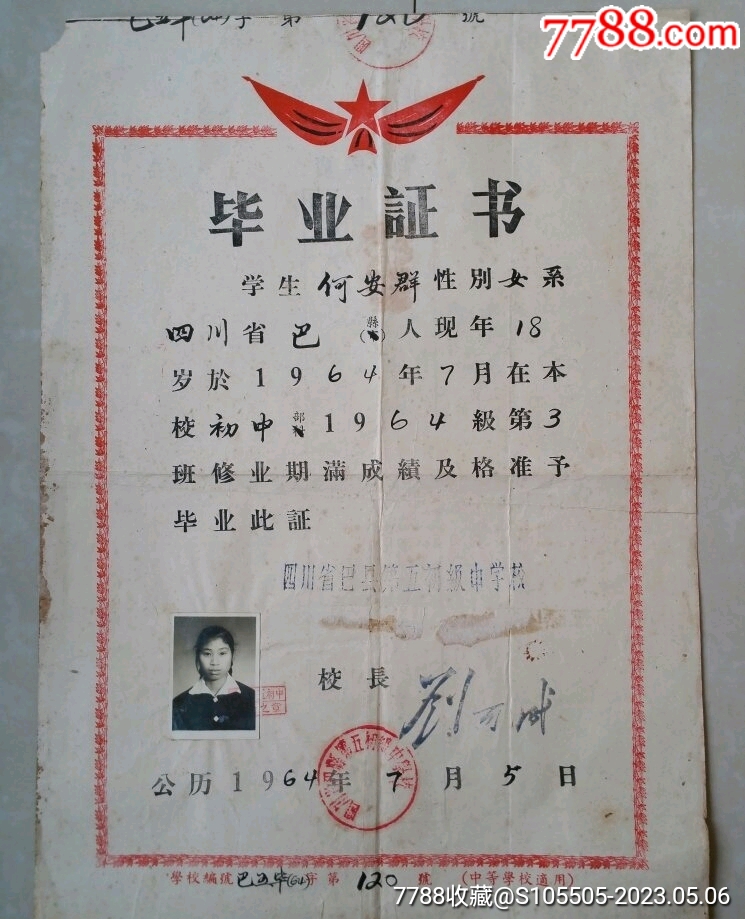 巴五毕(64)字 第 120 號
7788.com
毕业証书
学生何安群性別女系
四川省巴縣人现年18
岁於1964年7月在本
校初中部1964級第3
班修业期滿成績及格准予
毕业此証
四川省巴县第五初級中学校
校長
公历1964年7月5日
學校編號巴五毕(64)字第120號 (中等學校適用)
7788收藏@S105505-2023.05.06